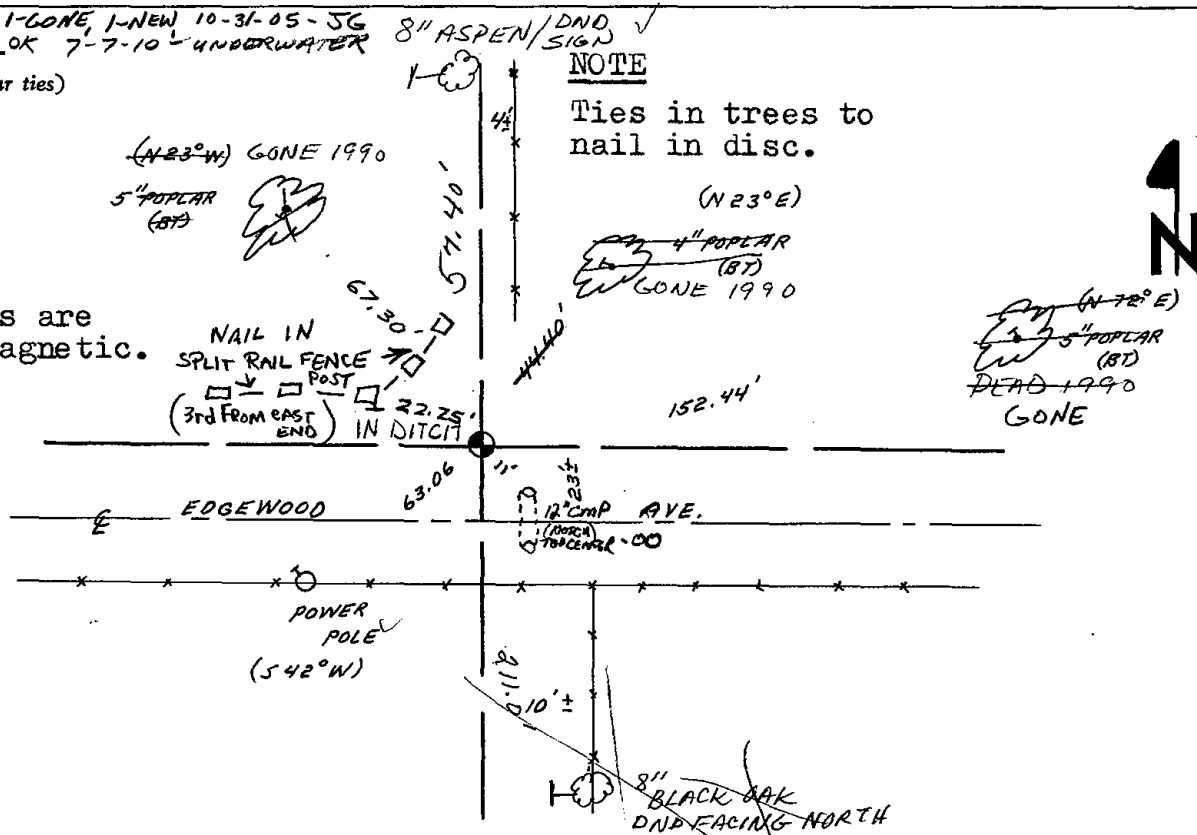 1-GONE, 1-NEW 10-31-05 - JG
OK 7-7-10 - UNDERWATER
8" ASPEN/DND SIGN ✓
ar ties)
NOTE
Ties in trees to
nail in disc.
4'±
(N23°W) GONE 1990
5" POPLAR
(BT)
57.40'
(N23°E)
4" POPLAR
(BT)
GONE 1990
N
(N72°E)
5" POPLAR
(BT)
DEAD 1990
GONE
s are
agnetic.
67.30
NAIL IN
SPLIT RAIL FENCE
POST
(3rd FROM EAST
END)
22.25'
IN DITCH
44.40'
152.44'
63.06
11'
23'±
EDGEWOOD AVE.
12" CMP
(NOTCH)
TOP CENTER -00
POWER
POLE ✓
(S42°W)
211.0
10'±
8"
BLACK OAK
DND FACING NORTH